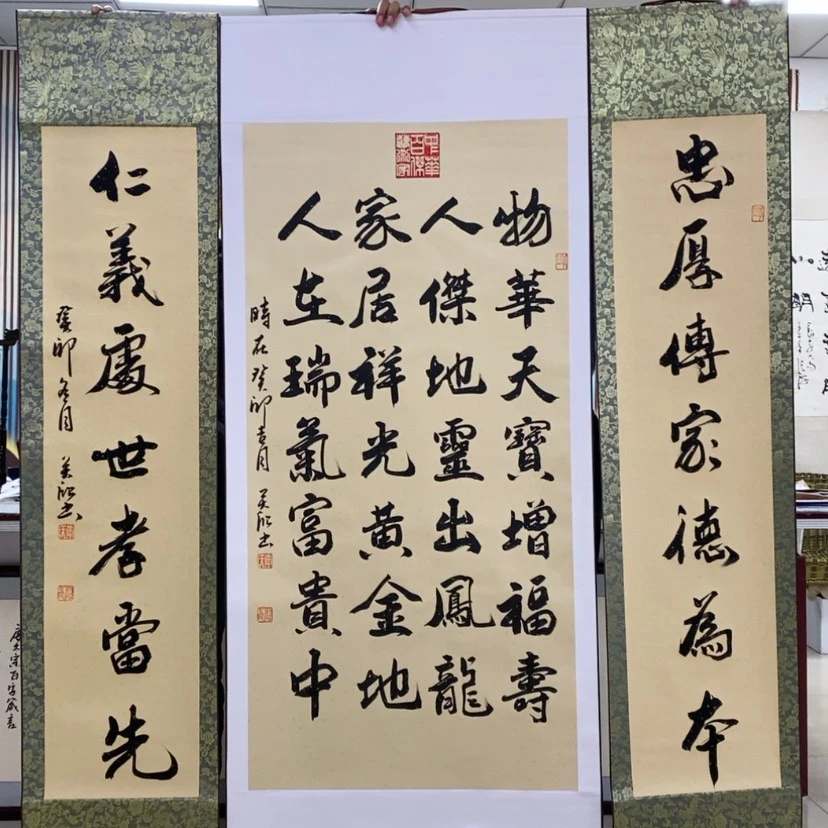 忠厚傳家德為本
物華天寶增福壽
人傑地靈出鳳龍
家居祥光黃金地
人在瑞氣富貴中
時在癸卯吉月 书
仁義處世孝當先
癸卯冬月 书
唐太宗百字箴言